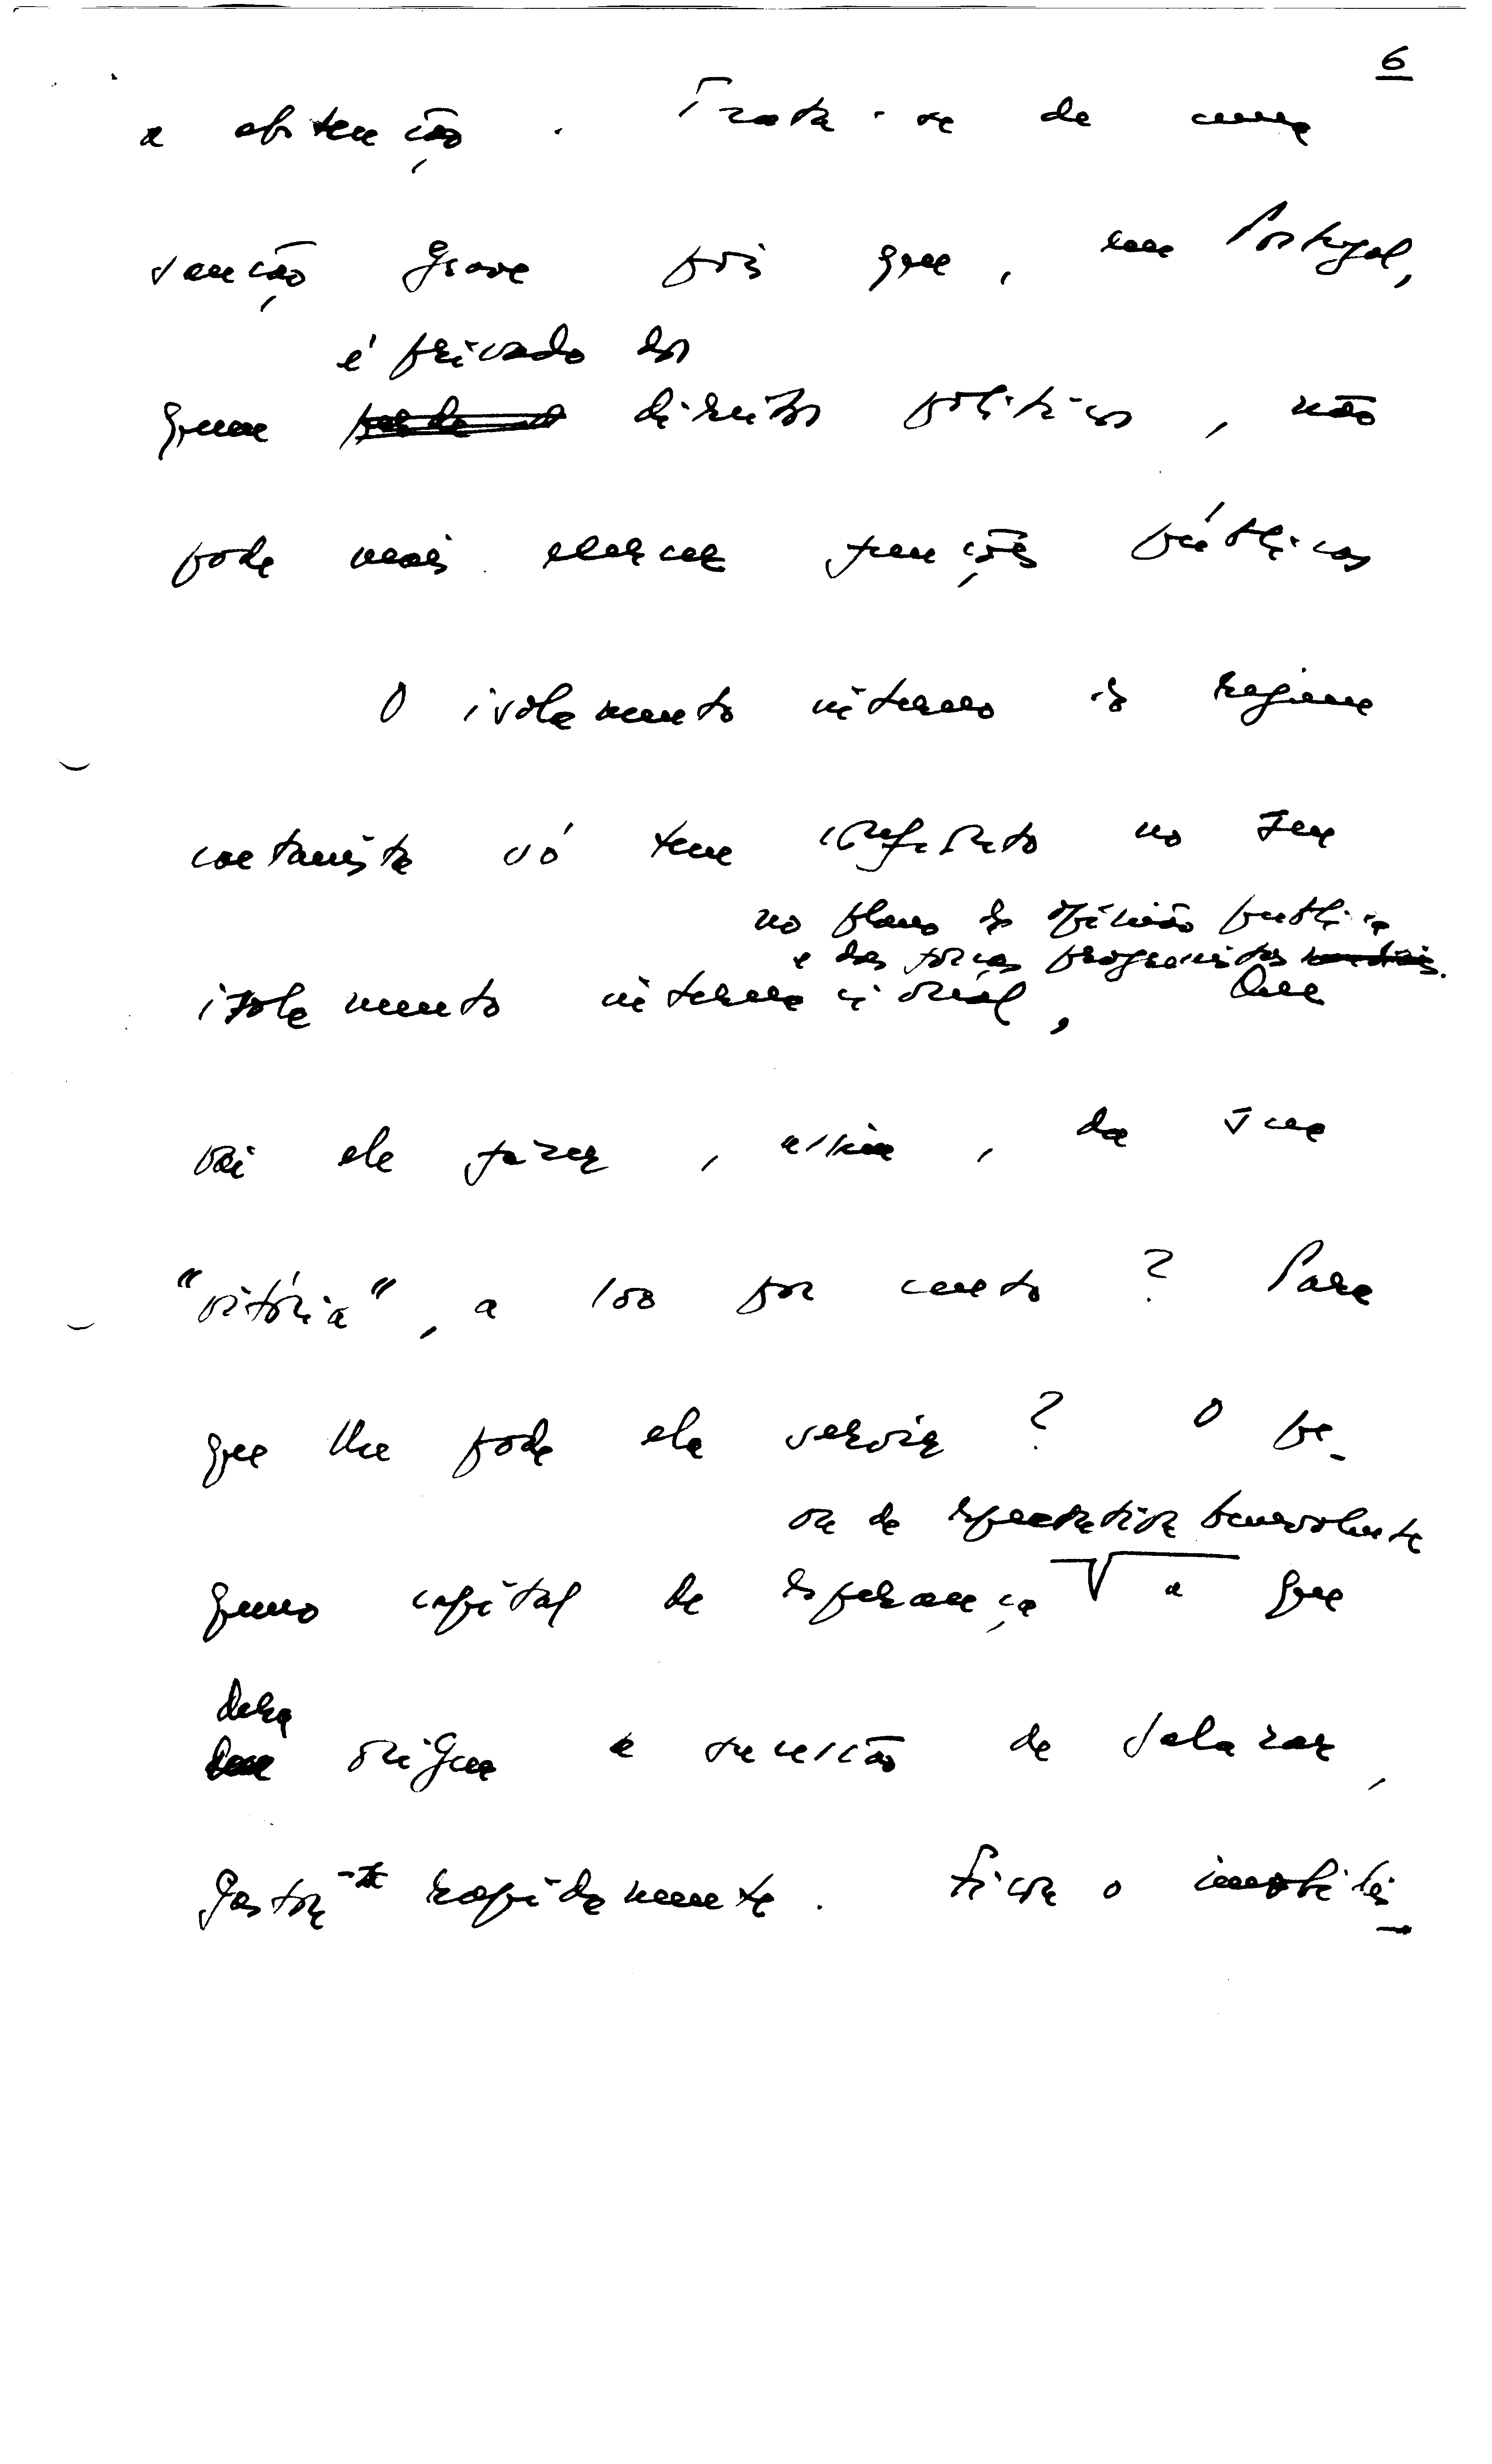 6
a abstenção. Trata-se de uma
sanção grave pois que, em Portugal,
é privado dos
quem perde os direitos políticos, não
pode mais exercer funções públicas
O isolamento interno do regime
caetanista só tem confronto no seu
no plano da opinião pública
e das forças progressistas mundiais.
isolamento internacional, Que
vai ele fazer, assim, da sua
"vitória", a 100 por cento? Para
que lhe pode ela servir? O pe-
ou de expectativa benevolente
queno capital de esperança a que
dera
origem a sucessão de Salazar,
gastou-se rapidamente. Ficou o imobilis-